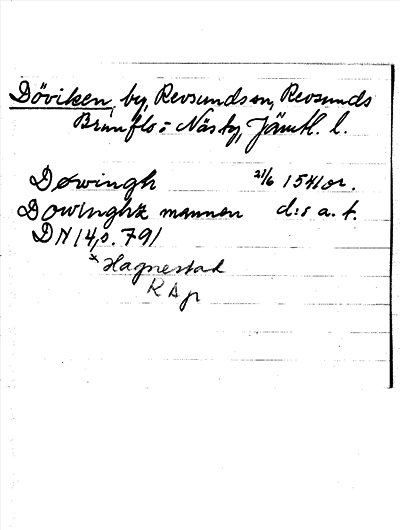 Döviken, by, Revsunds sn, Revsunds
Brunflo o Näs tg, Jämtl. l.
Døwingh 21/6 1541 or.
Dowinghz mannen d:s a. t.
DN 14, s. 791
* Hagnestad
R Ap